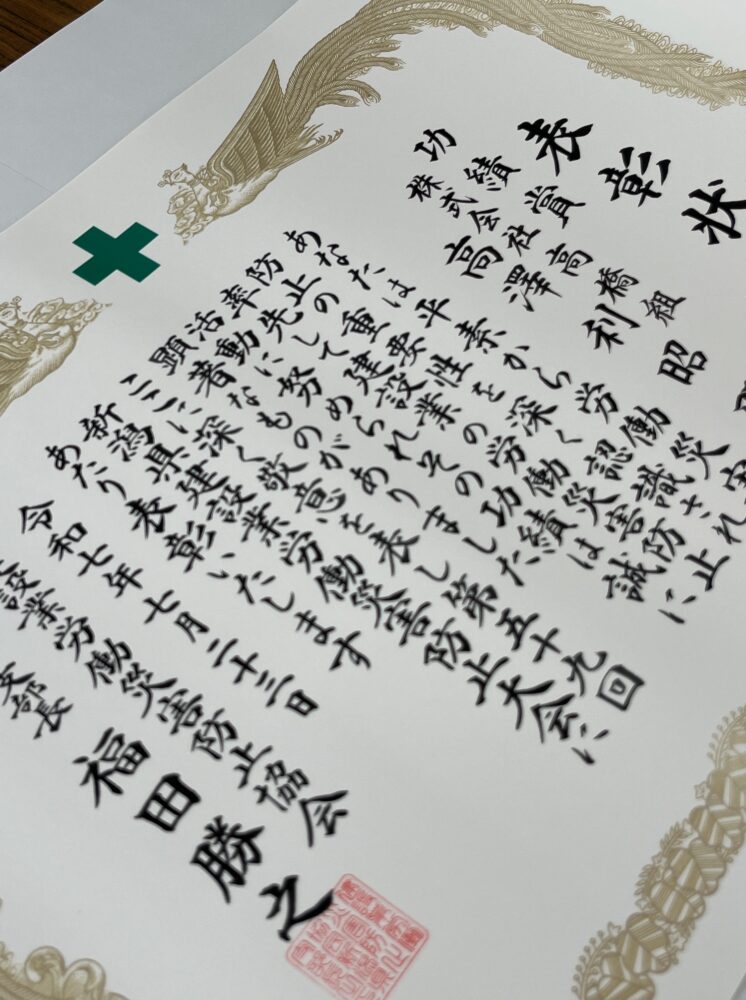 表彰状
功績賞
株式会社 高橋組
高澤利昭
あなたは平素から労働災害
防止の重要性を深く認識され
率先して建設業の労働災害防止に
活動に努められその功績は誠に
顕著なものがありました
ここに深く敬意を表し第五十九回
新潟県建設業労働災害防止大会に
あたり表彰いたします
令和七年七月二十三日
設業労働災害防止協会
支部長 福田勝之